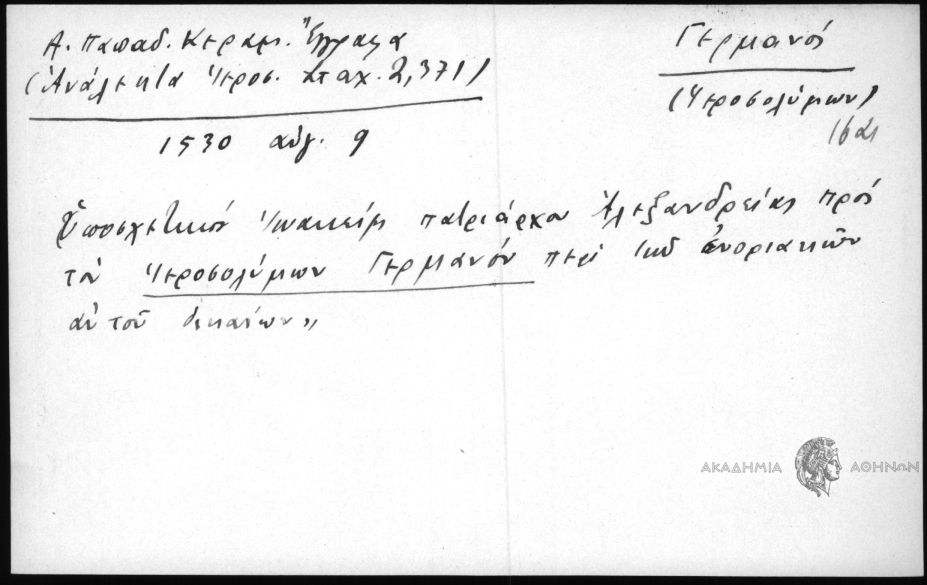 Α. Παπαδ. Κεραμ. Ἔγγραφα
(Ἀνάλεκτα Ἱεροσ. σταχ. 2, 371)
1530 αὐγ. 9
Γερμανός
(Ἱεροσολύμων)
Ὑποσχετικός Ἰωακείμ πατριάρχου Ἀλεξανδρείας πρός
τόν Ἱεροσολύμων Γερμανόν περί τῶν ἐνοριακῶν
αὐτοῦ δικαίων,,
ΑΚΑΔΗΜΙΑ ΑΘΗΝΩΝ